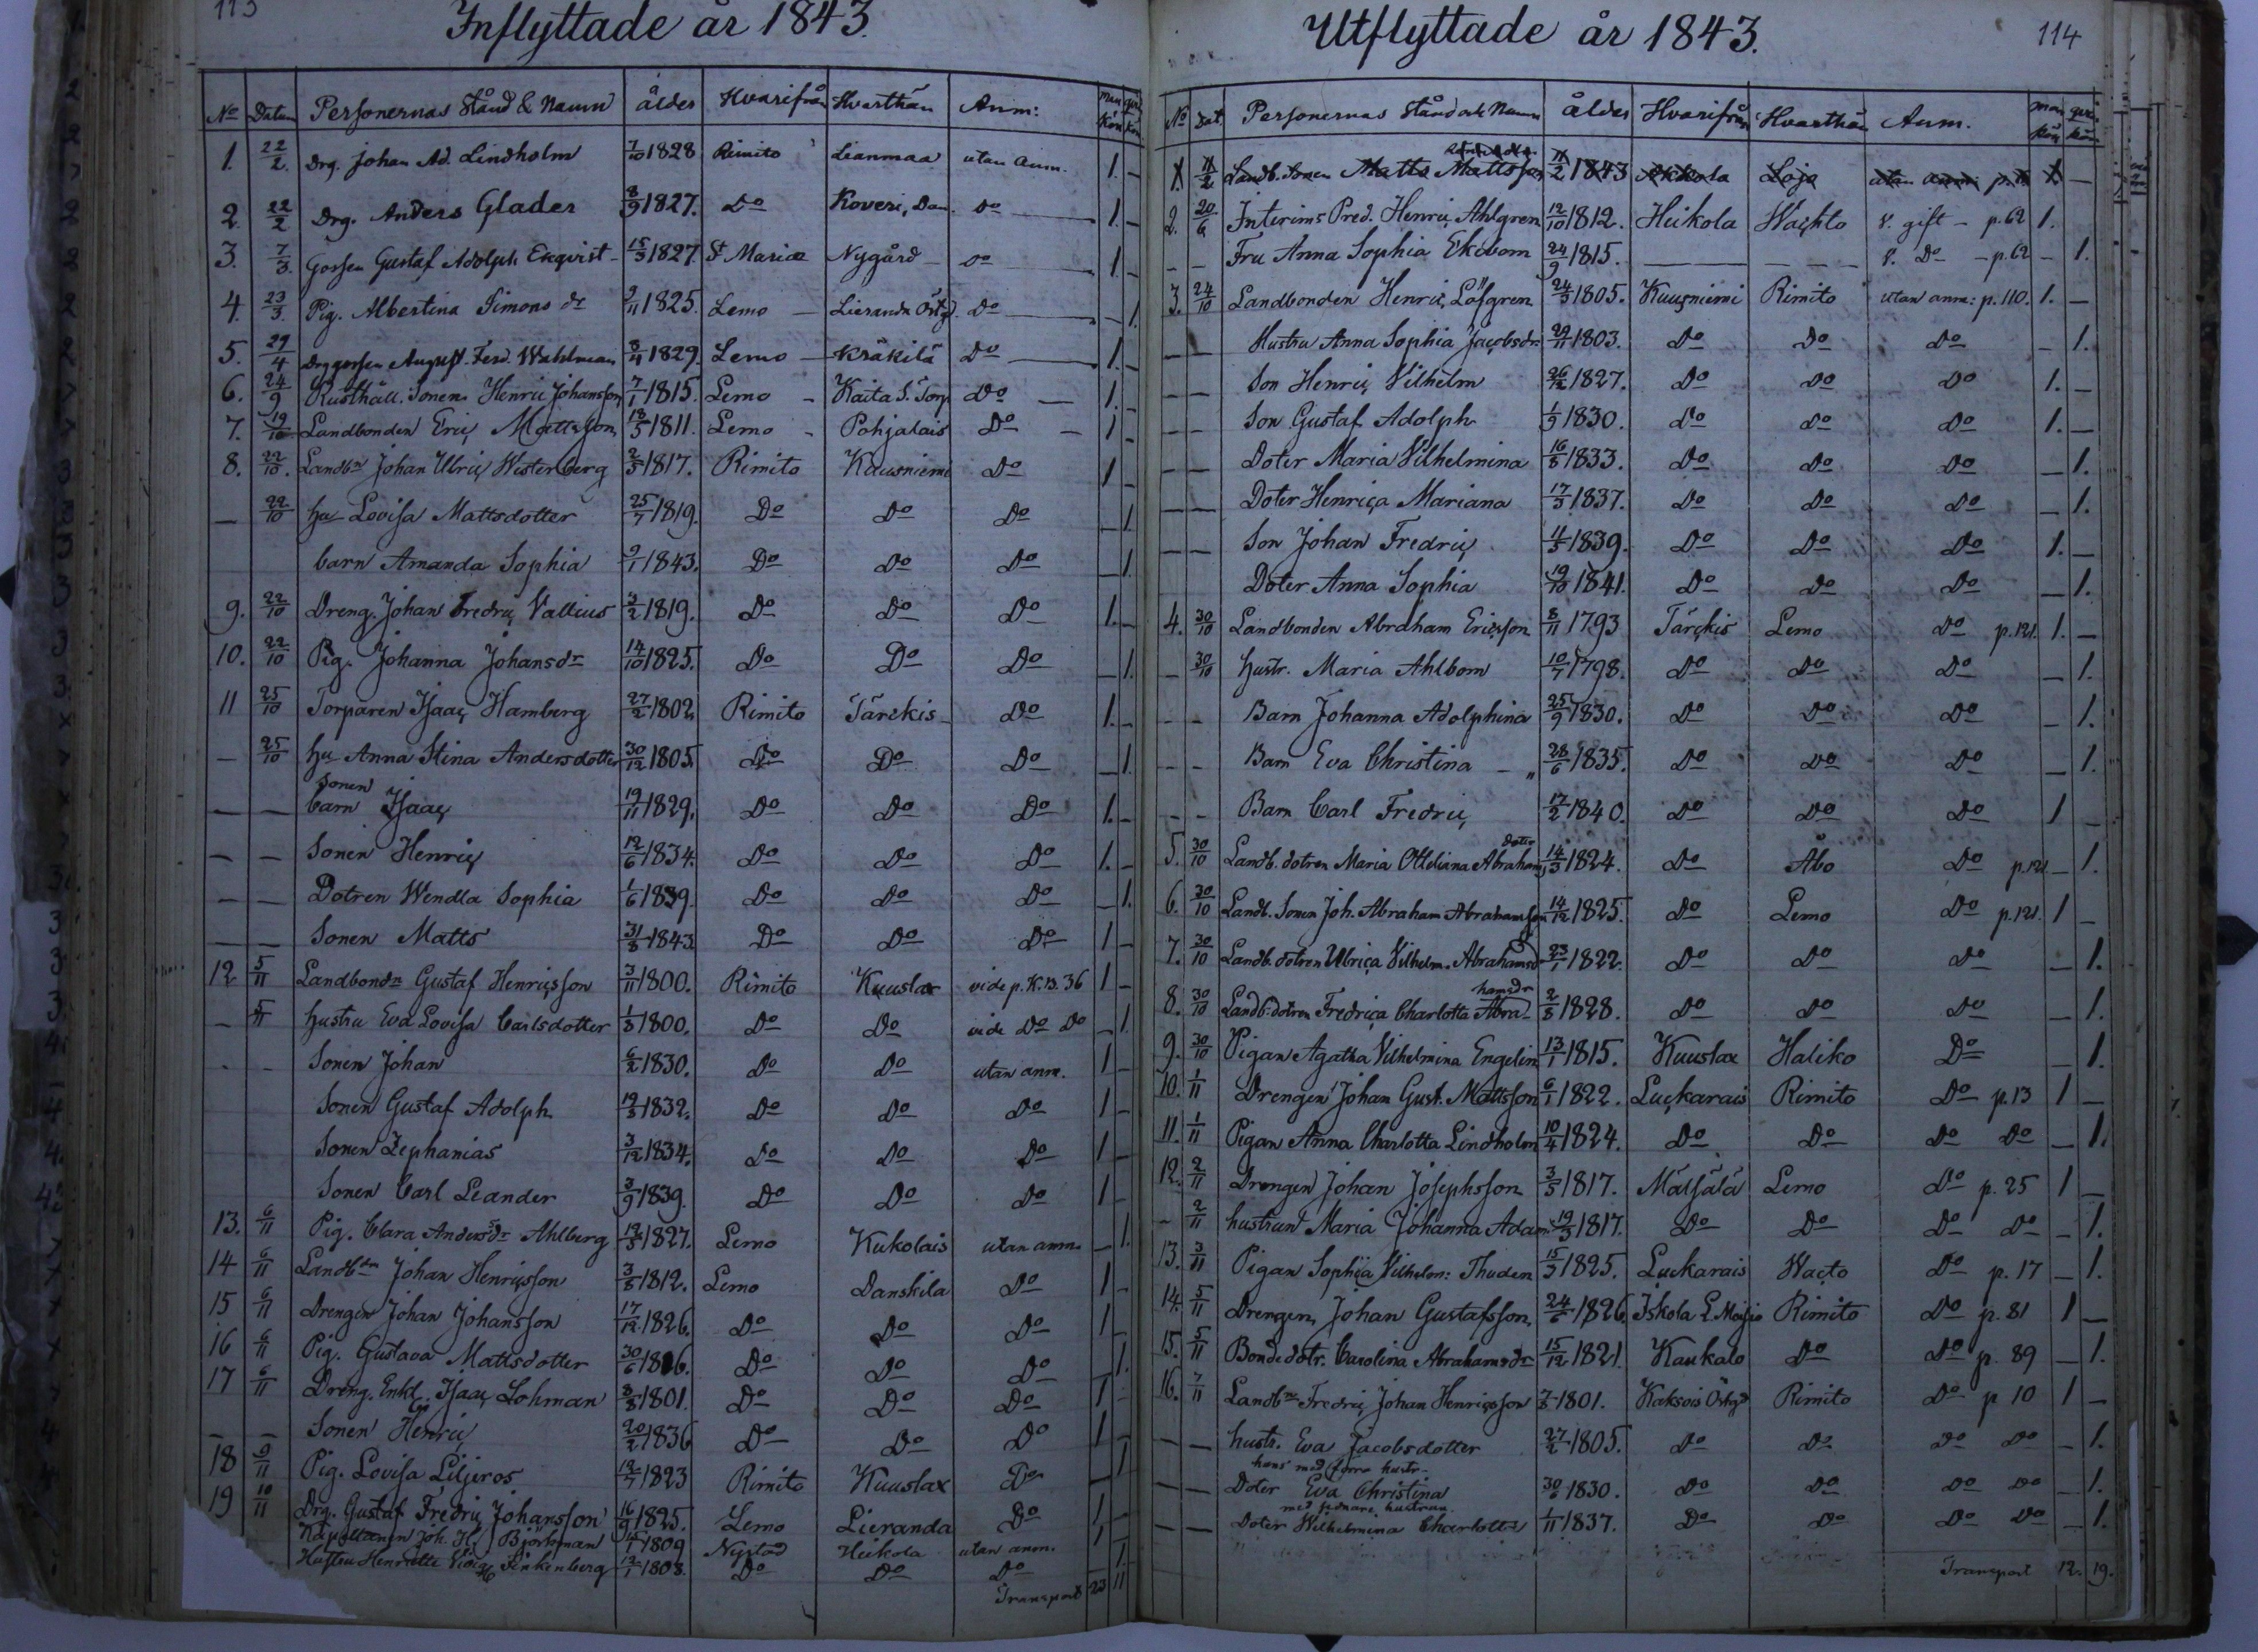 113
Inflyttade år 1843.
No Datum Personernas Stånd & Namn ålder Hvarifrån Hvarthän Anm: man kön qvi kön
1. 22/2. Drg. Johan Ad. Lindholm 7/10 1828 Rimito Lianmaa utan anm. 1. -
2. 22/2 Drg. Anders Glader 8/9 1827. Do Koveri, Dan. Do 1. -
3. 7/3. Gossen Gustaf Adolph Ekqvist 15/3 1827. St Mariæ Nygård Do 1. -
4. 23/3. Pig. Albertina Simons dr 9/11 1825. Lemo Lieranda Östg. Do - 1.
5. 29/4 Drg gossen August Ferd. Wahlman 8/4 1829. Lemo Kräkilä Do 1. -
6. 24/9 Rusthåll. Sonen Henric Johansson 7/1 1815. Lemo Kaita S. Torp Do 1. -
7. 19/10 Landbonden Eric Mattsson 18/5 1811. Lemo Pohjalais Do 1 -
8. 22/10. Landbn Johan Ulric Westerberg 2/5 1817. Rimito Kuusniemi Do 1 -
- 22/10 hu Lovisa Mattsdotter 25/7 1819. Do Do Do - 1.
barn Amanda Sophia 9/1 1843. Do Do Do - 1.
9. 22/10 Dreng. Johan Fredric Vallius 3/2 1819. Do Do Do 1. -
10. 22/10 Pig. Johanna Johansdr 14/10 1825. Do Do Do - 1.
11 25/10 Torparen Isaac Hamberg 27/2 1802. Rimito Tärckis Do 1. -
- 25/10 hu Anna Stina Andersdotter 30/12 1805. Do Do Do - 1.
Sonen
- - barn Isaac 19/11 1829. Do Do Do 1. -
- - Sonen Henric 12/6 1834. Do Do Do 1. -
- - Dotren Wendla Sophia 1/6 1839. Do Do Do - 1.
- - Sonen Matts 31/8 1843. Do Do Do 1 -
12. 5/11 Landbondn Gustaf Henricsson 3/11 1800. Rimito Kuuslax vide p. K.B. 36 1 -
- 5/11 hustru Eva Lovisa Carlsdotter 1/3 1800. Do Do vide Do Do - 1.
- - Sonen Johan 6/2 1830. Do Do utan anm. 1 -
Sonen Gustaf Adolph 19/3 1832. Do Do Do 1 -
Sonen Zephanias 3/12 1834. Do Do Do 1 -
Sonen Carl Leander 3/9 1839. Do Do Do 1 -
13. 6/11 Pig. Clara Andersdr Ahlberg 12/3 1827. Lemo Kukolais utan anm. - 1.
14 6/11 Landbdn Johan Henricsson 3/8 1812. Lemo Danskila Do 1 -
15 6/11 Drengen Johan Johansson 17/12 1826. Do Do Do 1 -
16 6/11 Pig. Gustava Mattsdotter 30/6 1816. Do Do Do - 1.
17 6/11 Dreng. Enkl. Isaac Lohman 8/8 1801. Do Do Do 1 -
- - Sonen Henric 20/2 1836 Do Do Do 1 -
18 9/11 Pig. Lovisa Liljeros 12/7 1823 Rimito Kuuslax Do - 1
19 10/11 Drg. Gustaf Fredric Johansson 16/9 1825. Lemo Lieranda Do 1 -
Kapellanen Joh. H. Björkman 15/1 1809 Nystad Heikola utan anm. 1 -
Hustru Henriette Finkenberg 12/1 1808. Do Do Do - 1.
Transport 23 11
114
Utflyttade år 1843.
No Dat. Personernas Stånd och Namn ålder Hvarifrån Hvarthän Anm. man kön qvi. kön
1. 11/2 Landb. Sonen Matts Mattsson 11/2 1843 Lojo utan anm: 1. -
2. 20/6 Interims Pred. Henric Ahlgren 12/10 1812. Heikola Wachto V. gift - p. 62 1.
- - Fru Anna Sophia Ekebom 24/9 1815. V. Do - p. 62 - 1.
3. 24/10 Landbonden Henric Löfgren 24/3 1805. Kuusniemi Rimito utan anm: p. 110. 1. -
- - Hustru Anna Sophia Jacobsdr 29/11 1803. Do Do Do - 1.
- - Son Henric Vilhelm 26/12 1827. Do Do Do 1. -
- - Son Gustaf Adolph 1/9 1830. Do Do Do 1. -
- - Doter Maria Vilhelmina 16/8 1833. Do Do Do - 1.
- - Doter Henrica Mariana 17/3 1837. Do Do Do - 1.
- - Son Johan Fredric 11/5 1839. Do Do Do 1. -
Doter Anna Sophia 19/10 1841. Do Do Do - 1.
4. 30/10 Landbonden Abraham Ericsson 8/11 1793 Tärckis Lemo Do p. 121. 1. -
- 30/10 hustr. Maria Ahlbom 10/7 1798. Do Do Do - 1.
- - Barn Johanna Adolphina 25/9 1830. Do Do Do - 1.
- - Barn Eva Christina 28/6 1835. Do Do Do - 1.
- - Barn Carl Fredric 17/2 1840. Do Do Do 1 -
doter
5. 30/10 Landb. dotren Maria Ottiliana Abrahams 14/3 1824. Do Åbo Do p. 121. - 1.
6. 30/10 Landb. Sonen Joh. Abraham Abrahamsson 14/12 1825. Do Lemo Do p. 121. 1 -
7. 30/10 Landb. dotren Ulrica Vilhelm. Abrahamsd 23/1 1822. Do Do Do - 1.
hamsdr
8. 30/10 Landb: dotren Fredrica Charlotta Abra- 2/8 1828. Do Do Do - 1.
9. 30/10 Pigan Agatha Vilhelmina Engelin 13/1 1815. Kuuslax Haliko Do - 1.
10. 1/11 Drengen Johan Gust. Mattsson 6/1 1822. Luckarais Rimito Do p. 13 1 -
11. 1/11 Pigan Anna Charlotta Lindholm 10/4 1824. Do Do Do Do - 1.
12. 2/11 Drengen Johan Josephsson 3/5 1817. Mälsälä Lemo Do p. 25 1 -
- 2/11 hustrun Maria Johanna Adam 19/3 1817. Do Do Do Do - 1.
13. 3/11 Pigan Sophia Vilhelm: Thuden 15/3 1825. Luckarais Wacto Do p. 17 - 1.
14. 5/11 Drengen Johan Gustafsson 24/6 1826. Iskola L. Moisio Rimito Do p. 81 1 -
15. 5/11 Bondedotr. Carolina Abrahamsdr 15/12 1821. Kaukalo Do Do p. 89 - 1.
16. 7/11 Landbn Fredric Johan Henricsson 7/8 1801. Kaksois Östgd Rimito Do p 10 1 -
- - hustr. Eva Jacobsdotter 27/2 1805. Do Do Do Do - 1.
hans med förra hustr-
- - Doter Eva Christina 30/6 1830. Do Do Do Do - 1.
med sednare hustrun.
- - Doter Wilhelmina Charlotta 1/11 1837. Do Do Do Do - 1.
Transport 12. 19.